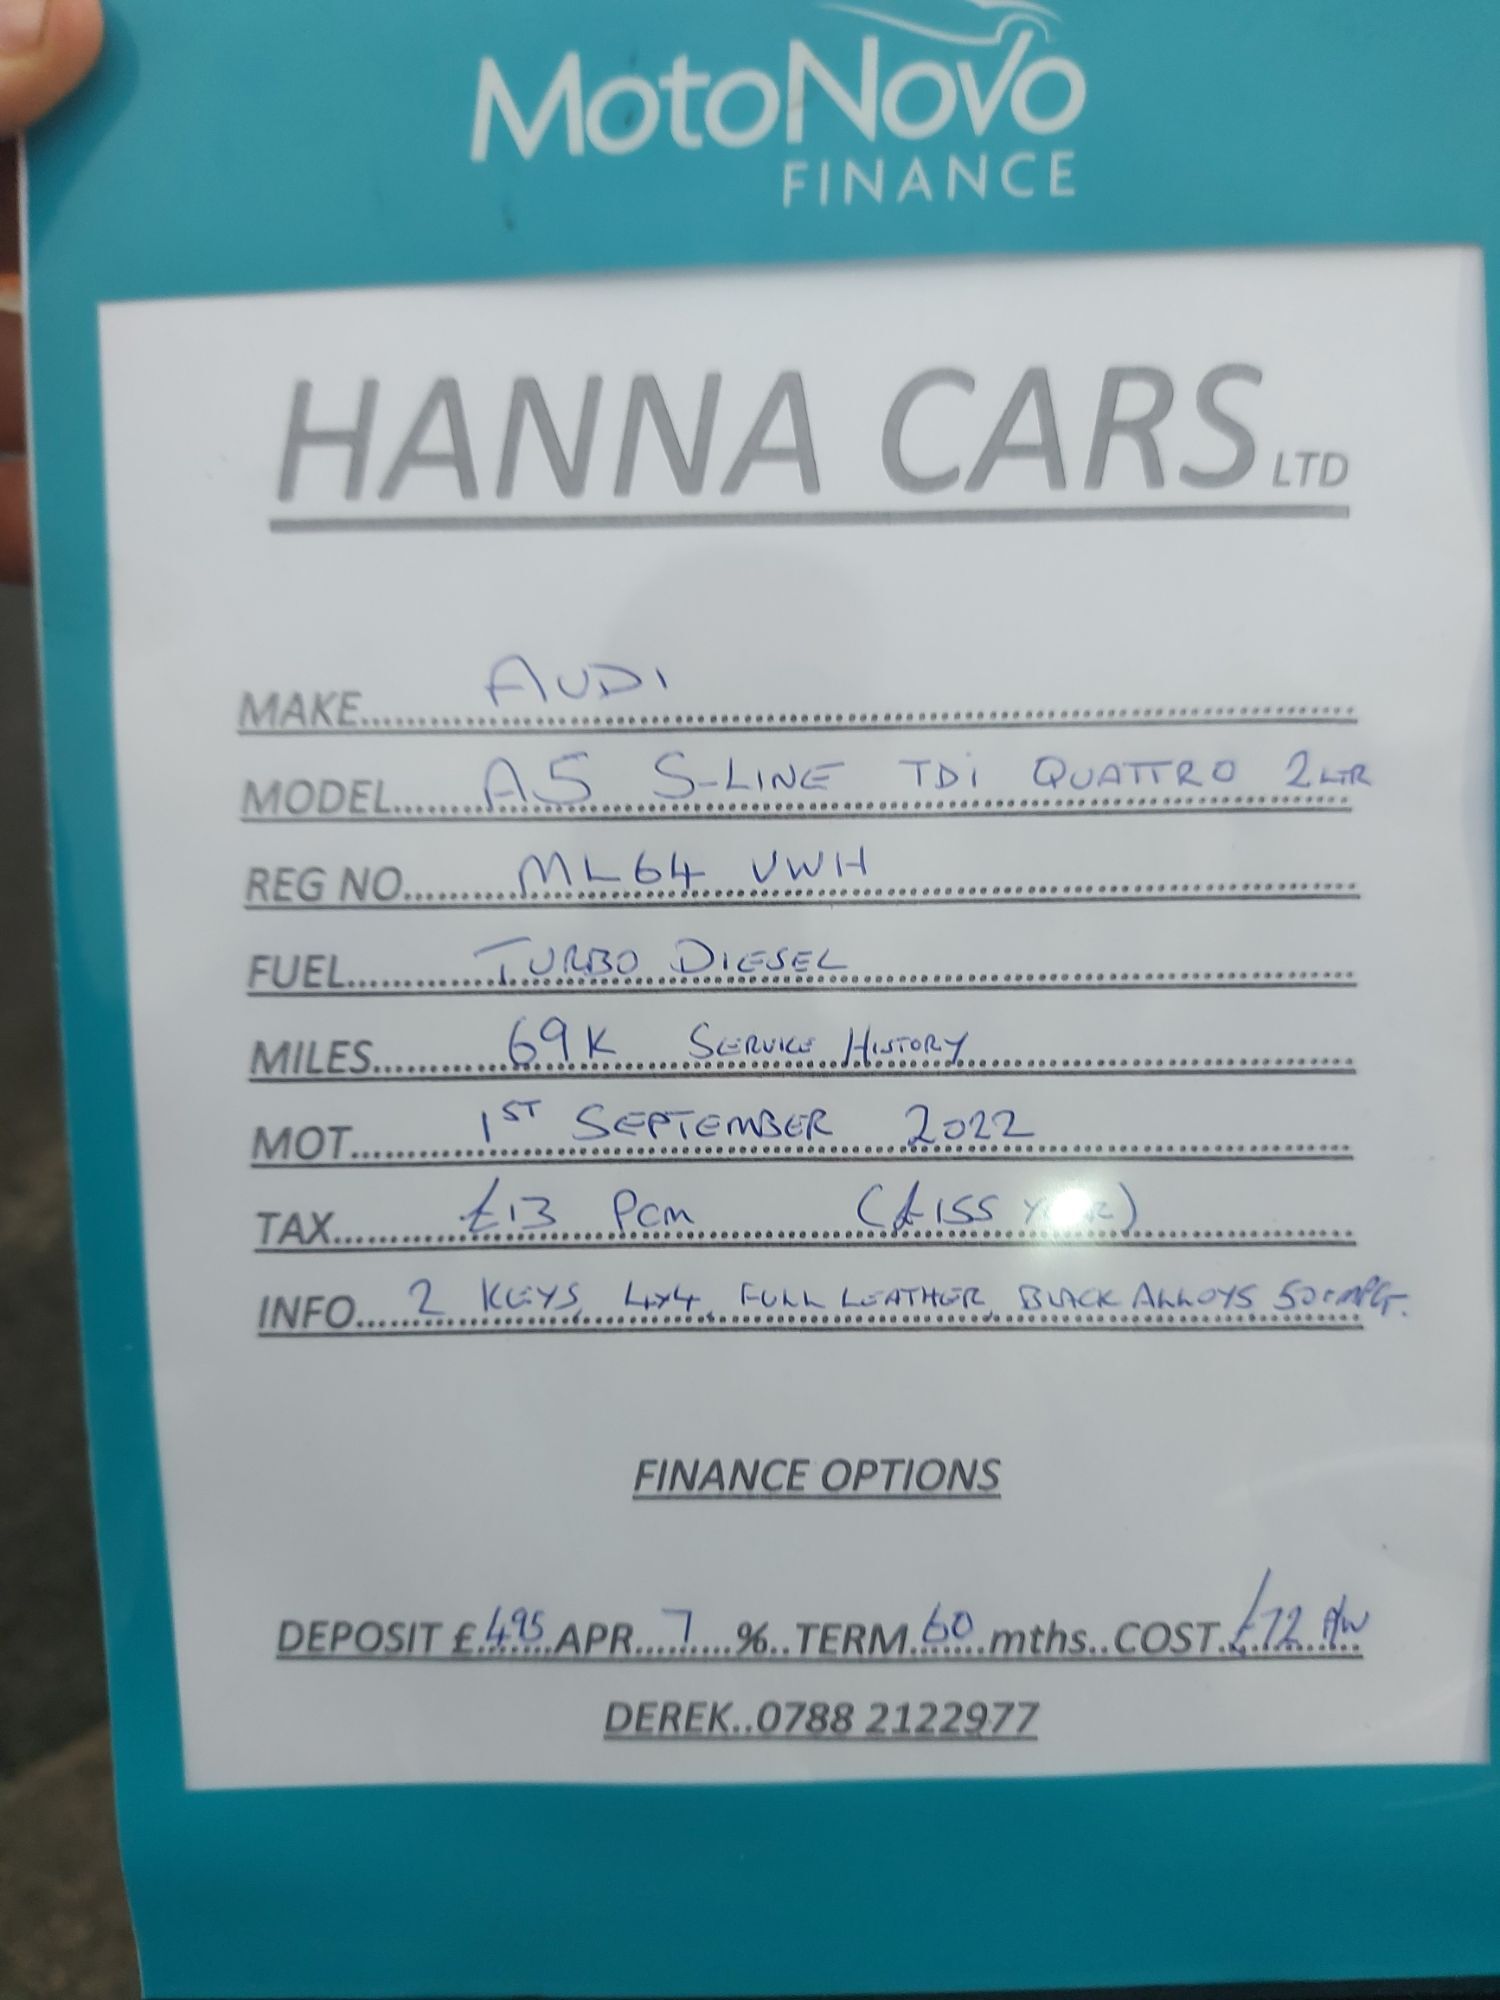 MotoNovo
FINANCE
HANNA CARS LTD
MAKE........AUDI........
MODEL........A5 S-LINE TDi QUATTRO 2LTR
REG NO........ML64 VWH........
FUEL........TURBO DIESEL........
MILES........69K SERVICE HISTORY........
MOT........1ST SEPTEMBER 2022........
TAX........£13 PCM (£155 YEAR)........
INFO....2 KEYS, 4x4, FULL LEATHER, BLACK ALLOYS 50+MPG.
FINANCE OPTIONS
DEPOSIT £.495....APR....7....%..TERM.60...mths..COST.£72 P/W
DEREK..0788 2122977